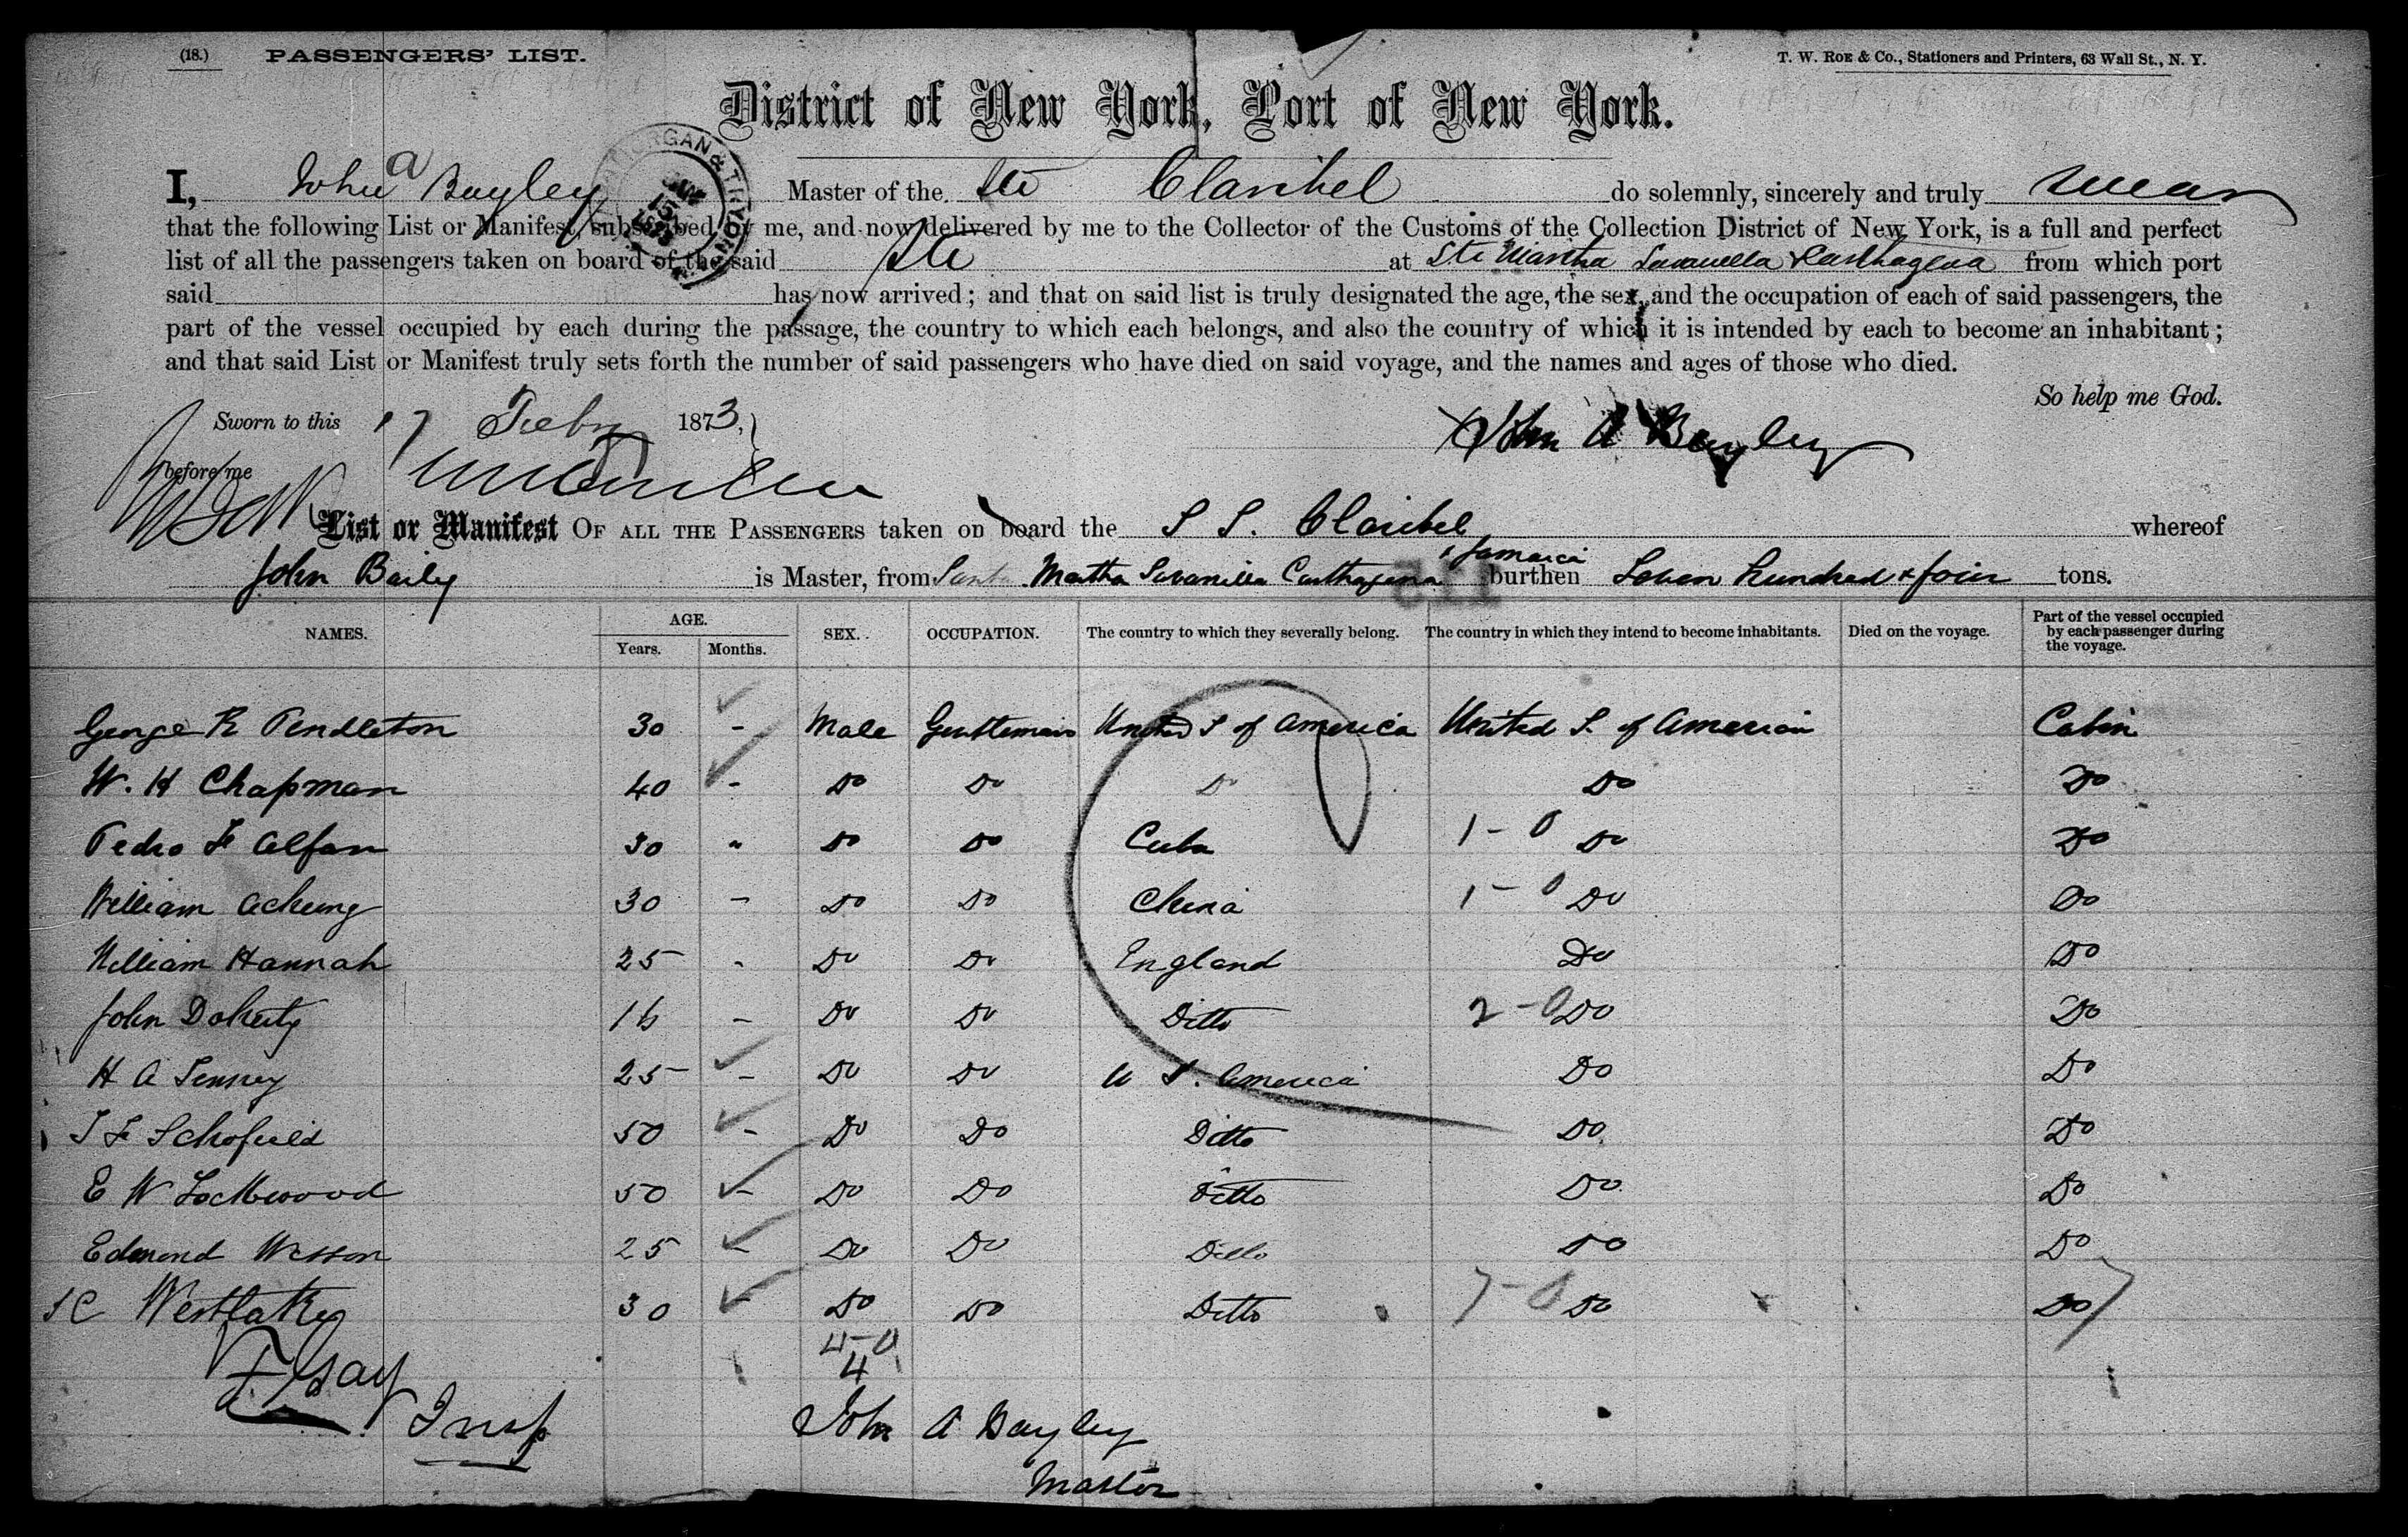 (18.) PASSENGERS' LIST. T. W. ROE & Co., Stationers and Printers, 63 Wall St., N. Y.
District of New York, Port of New York.
I, John a Bayley Master of the Str Claribel do solemnly, sincerely and truly swear
that the following List or Manifest, subscribed by me, and now delivered by me to the Collector of the Customs of the Collection District of New York, is a full and perfect
list of all the passengers taken on board of the said Str at Sta Martha Savanella & Carthagena from which port
said has now arrived; and that on said list is truly designated the age, the sex, and the occupation of each of said passengers, the
part of the vessel occupied by each during the passage, the country to which each belongs, and also the country of which it is intended by each to become an inhabitant;
and that said List or Manifest truly sets forth the number of said passengers who have died on said voyage, and the names and ages of those who died.
So help me God.
Sworn to this 17 Feby 1873, John A Bayley
before me
List or Manifest OF ALL THE PASSENGERS taken on board the S S. Claribel whereof
John Baily is Master, from Santa Martha Savanilla Carthagena & Jamaica burthen Seven hundred & four tons.
NAMES. AGE. Years. Months. SEX. OCCUPATION. The country to which they severally belong. The country in which they intend to become inhabitants. Died on the voyage. Part of the vessel occupied by each passenger during the voyage.
George R Pendleton 30 - Male Gentleman United S of America United S. of America Cabin
W. H Chapman 40 - Do Do Do Do Do
Pedro F Alfan 30 " Do Do Cuba 1-0 Do Do
William Acheung 30 - Do Do China 1-0 Do Do
William Hannah 25 - Do Do England Do Do
John Doherty 16 - Do Do Ditto 2-0 Do Do
H A Tenney 25 - Do Do U S. America Do Do
T F Schofield 50 - Do Do Ditto Do Do
E W Lockwood 50 - Do Do Ditto Do Do
Edmond Wesson 25 - Do Do Ditto Do Do
S C Westlake 30 - Do Do Ditto 7-0 Do Do
4-0
4
Insp
John A Bayley
Master